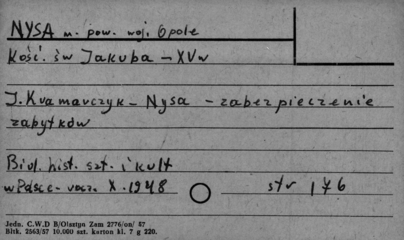 NYSA m. pow. woj. Opole
Kość. św Jakuba – XVw
J. Kramarczyk – Nysa – zabezpieczenie
zabytków
Biul. hist. szt. i kult
w Polsce – rocz. X. 1948 str 176
Jedn. C.W.D B/Olsztyn Zam 2776/on/ 57
Bltk. 2563/57 10.000 szt. karton kl. 7 g 220.